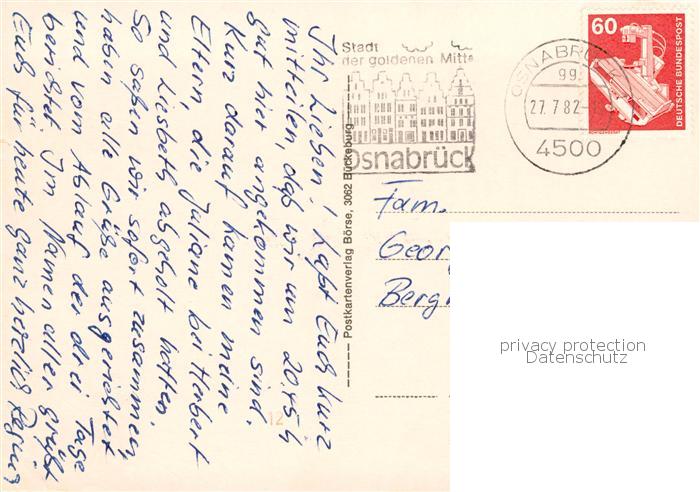 Ihr Lieben! Laßt Euch kurz
mitteilen, daß wir um 20.45 h
gut hier angekommen sind.
Kurz darauf kamen meine
Eltern, die Juliane bei Herbert
und Liesbeth abgeholt hatten.
So saßen wir sofort zusammen,
haben alle Grüße ausgerichtet
und vom Ablauf der drei Tage
berichtet. Im Namen aller grüßt
Euch für heute ganz herzlich Regina
Postkartenverlag Börse, 3062 Bückeburg
12
Stadt
der goldenen Mitte
Osnabrück
OSNABRÜ
99
27.7.82-
4500
60
DEUTSCHE BUNDESPOST
Fam.
Georg
Berg
privacy protection
Datenschutz